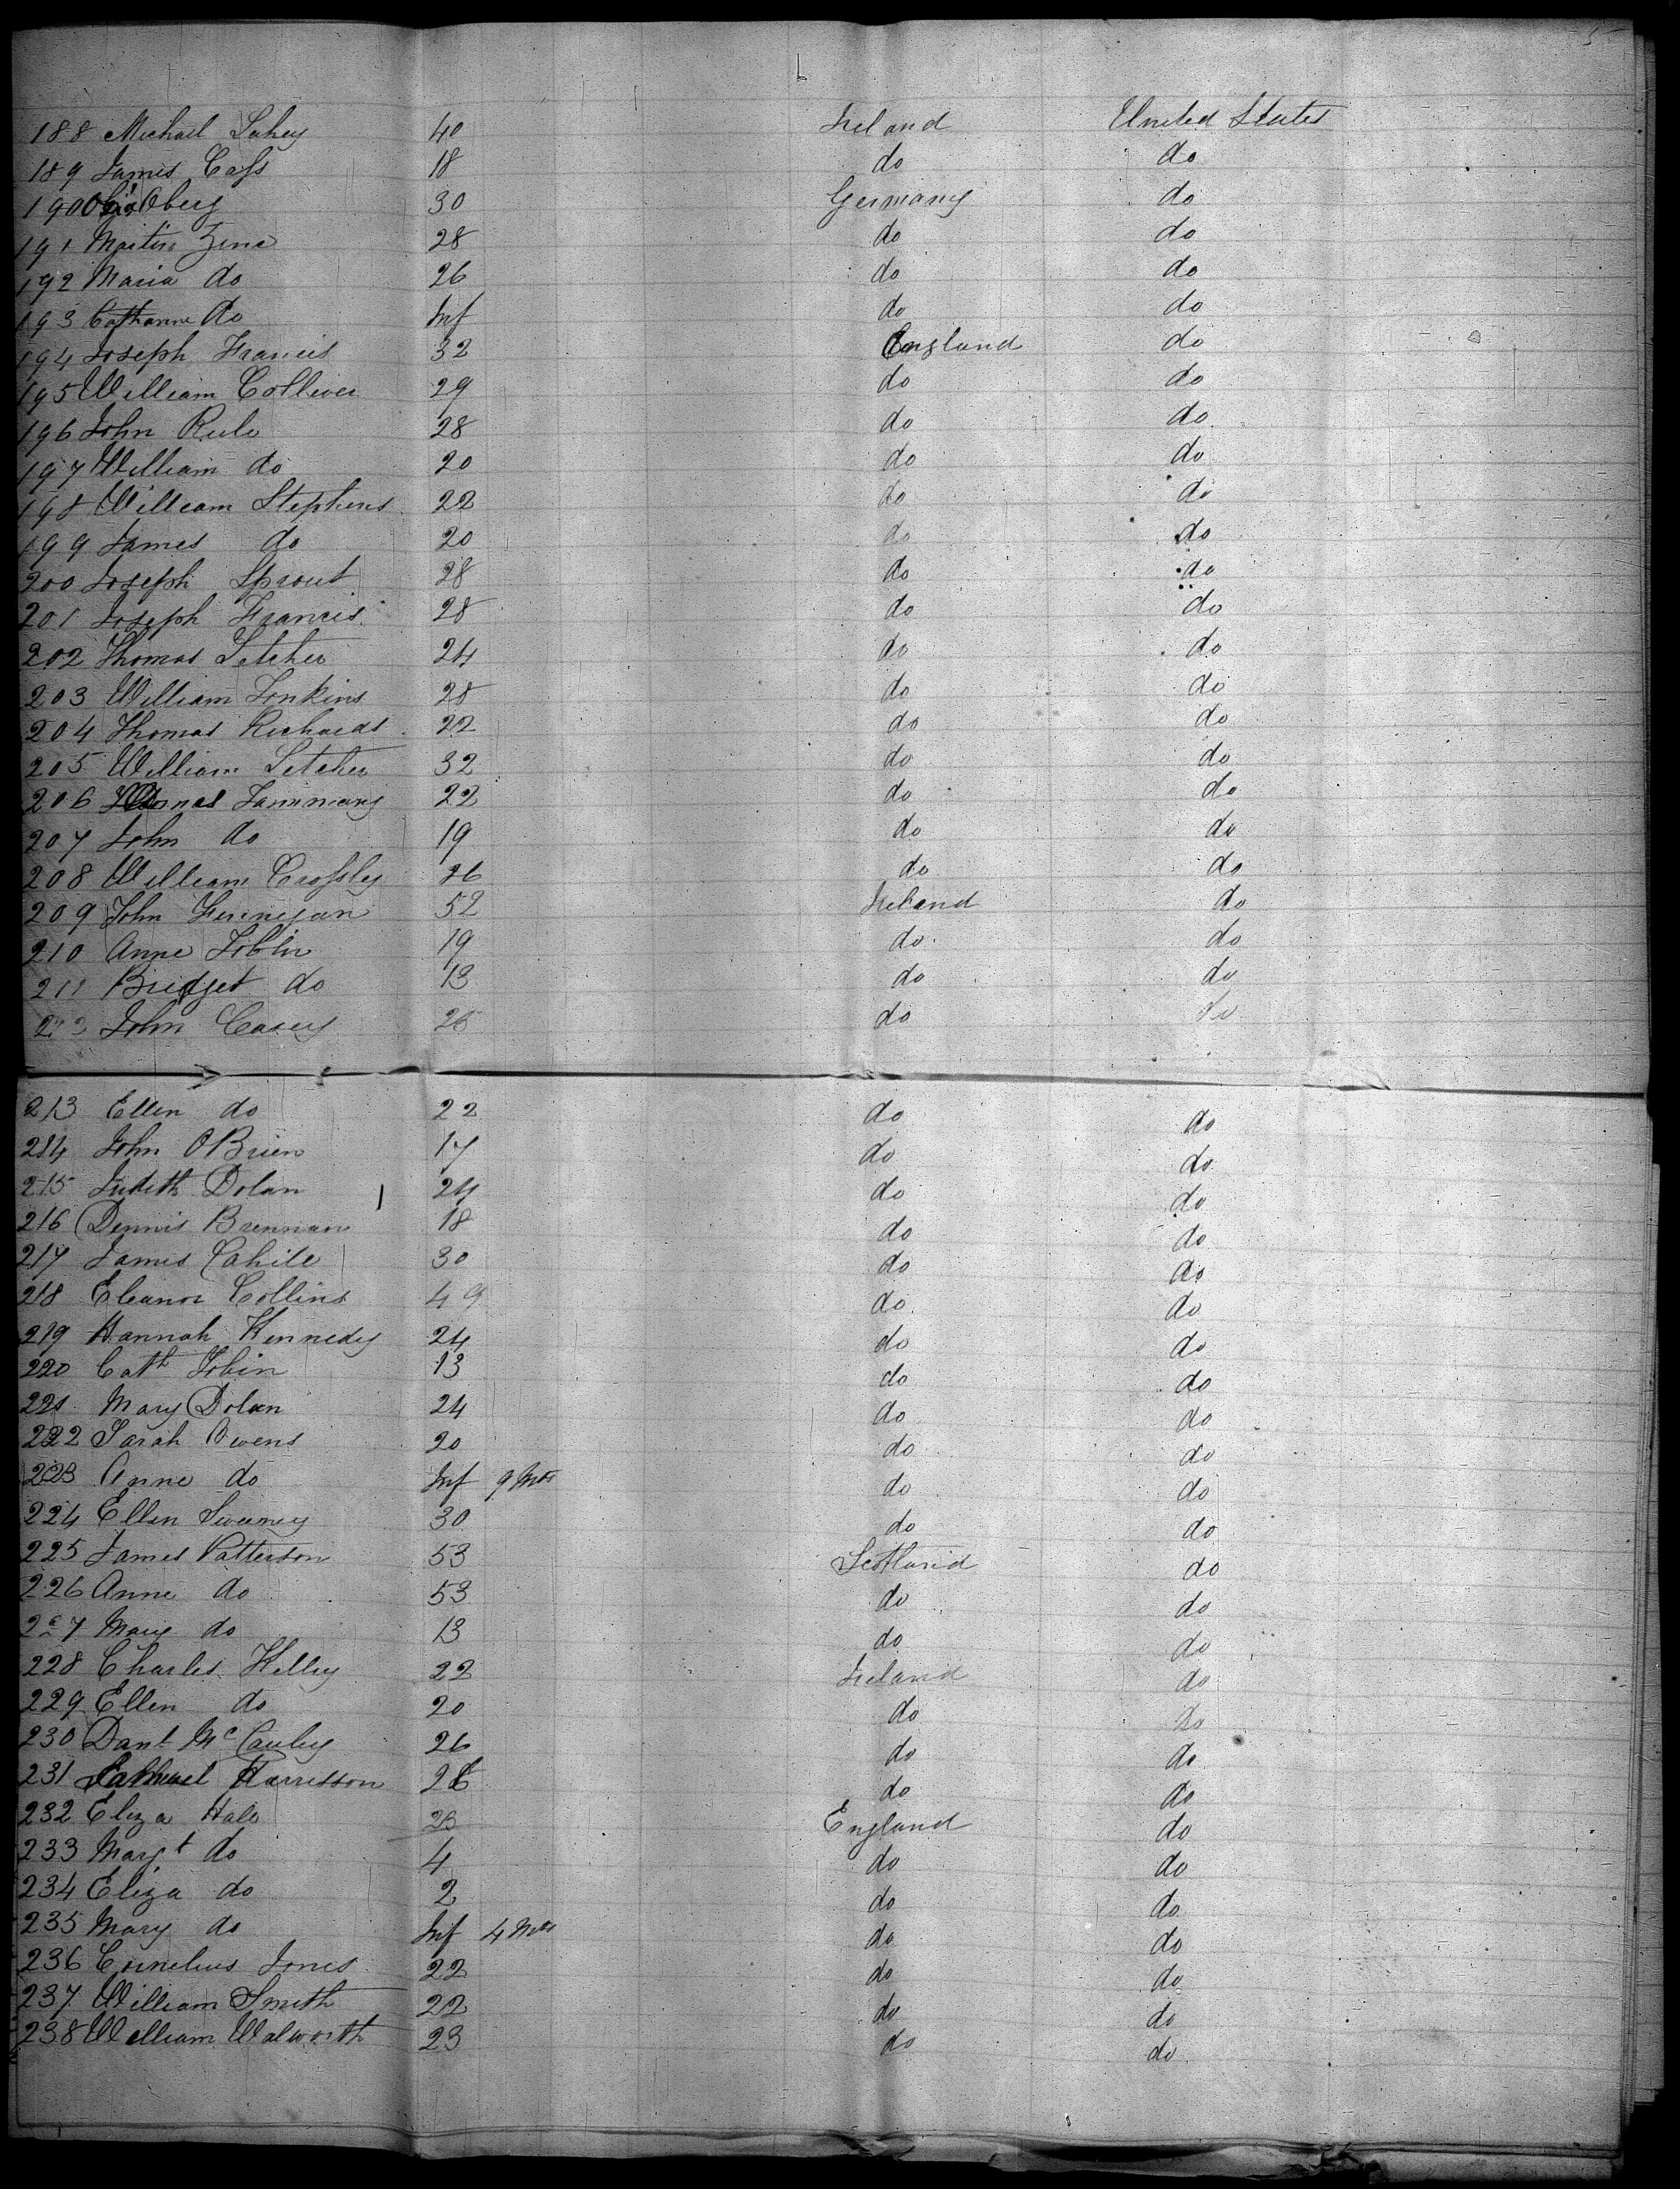 188 Michael Lahey 40 Ireland United States
189 James Cass 18 do do
190 Oberg 30 Germany do
191 Martin Zene 28 do do
192 Maria do 26 do do
193 Catharine do Inf do do
194 Joseph Francis 32 England do
195 William Colliver 29 do do
196 John Rule 28 do do
197 William do 20 do do
198 William Stephens 22 do do
199 James do 20 do do
200 Joseph Sprout 28 do do
201 Joseph Francis 28 do do
202 Thomas Letcher 24 do do
203 William Jenkins 28 do do
204 Thomas Richards 22 do do
205 William Letcher 32 do do
206 Thomas 22 do do
207 John do 19 do do
208 William Crossley 26 do do
209 John Finnegan 52 Ireland do
210 Anne Tobin 19 do do
211 Bridget do 13 do do
212 John Casey 25 do do
213 Ellen do 22 do do
214 John OBrien 17 do do
215 Judith Dolan 24 do do
216 Dennis Brennan 18 do do
217 James Cahill 30 do do
218 Eleanor Collins 49 do do
219 Hannah Kennedy 24 do do
220 Cath Tobin 13 do do
221 Mary Dolan 24 do do
222 Sarah Owens 20 do do
223 Anne do Inf 9 Mos do do
224 Ellen Sweeney 30 do do
225 James Patterson 53 Scotland do
226 Anne do 53 do do
227 Mary do 13 do do
228 Charles Kelley 22 Ireland do
229 Ellen do 20 do do
230 Danl McCauley 26 do do
231 Harrisson 26 do do
232 Eliza Hale 23 England do
233 Margt do 4 do do
234 Eliza do 2 do do
235 Mary do Inf 4 Mos do do
236 Cornelius Jones 22 do do
237 William Smith 22 do do
238 William Walworth 23 do do